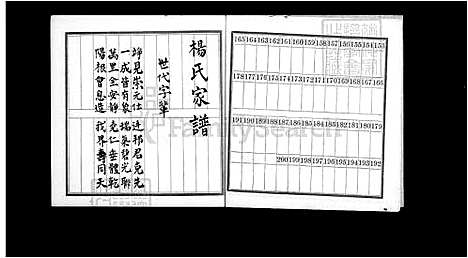 楊氏家譜
世代字輩
見崇元仕 連邦君克先
一成皆有象 瑞集碧光聯
萬里全安靜 克仁垂體乾
陽根會息造 我界壽同天
165 164 163 162 161 160 159 158 157 156 155 154 153
178 177 176 175 174 173 172 171 170 169 168 167 166
191 190 189 188 187 186 185 184 183 182 181 180 179
200 199 198 197 196 195 194 193 192
FamilySearch